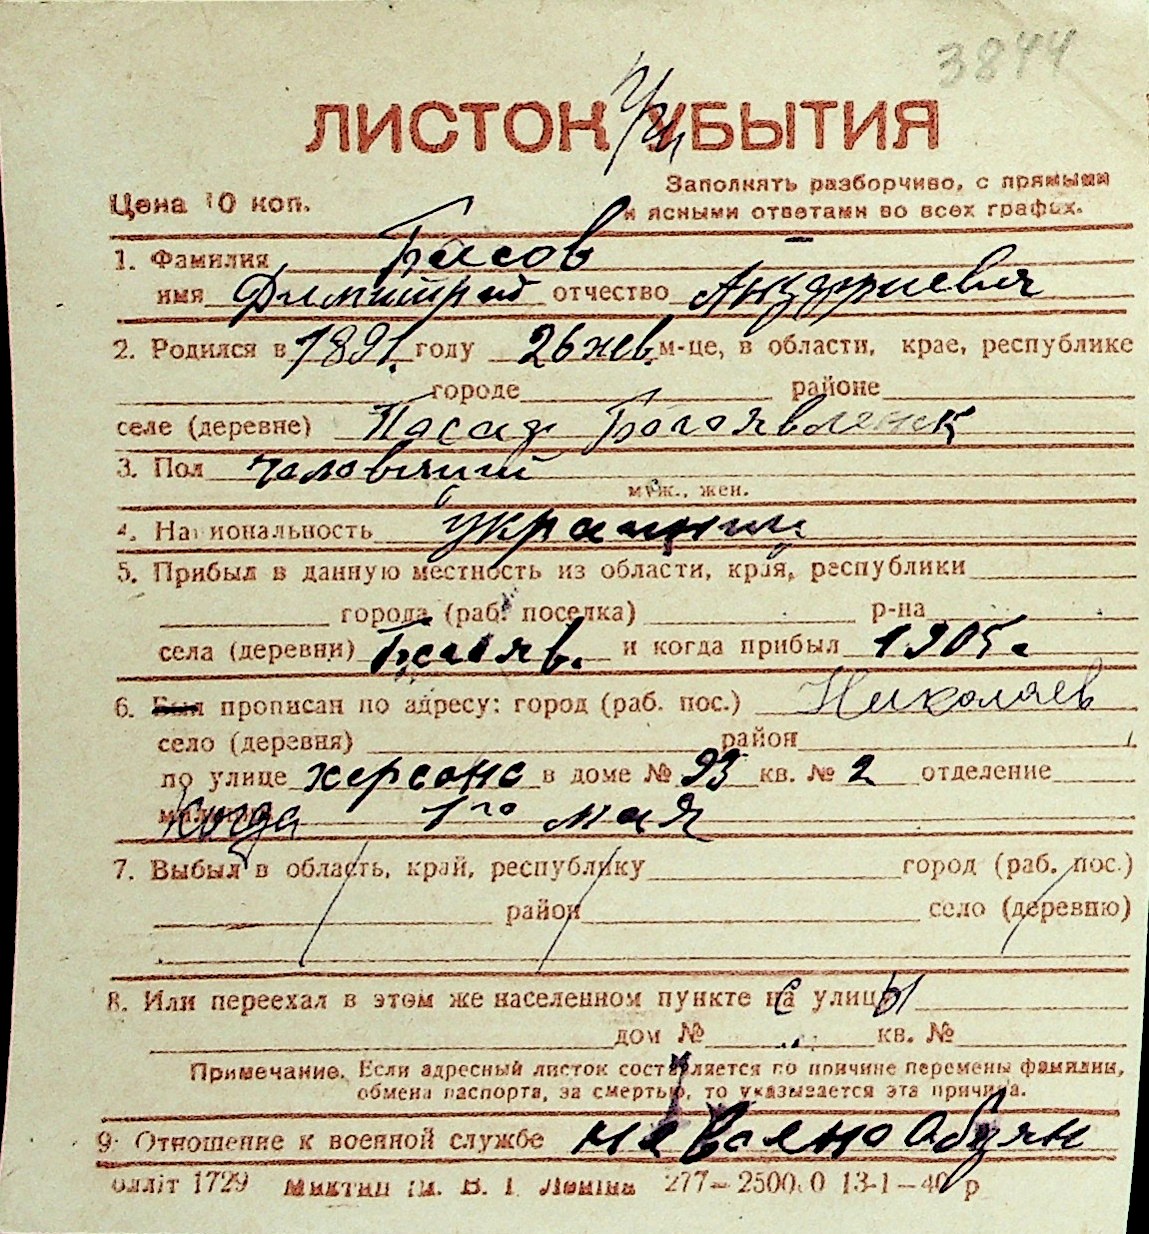 3844
ЛИСТОК УБЫТИЯ
Цена 10 коп.
Заполнять разборчиво, с прямыми
и ясными ответами во всех графах.
1. Фамилия Басов
имя Димитрий отчество Андриевич
2. Родился в 1891. году 26 нев. м-це, в области, крае, республике
городе районе
селе (деревне) Посад Богоявленск
3. Пол чоловичий
муж., жен.
4. Национальность украинии
5. Прибыл в данную местность из области, края, республики
города (раб. поселка) р-на
села (деревни) Богояв. и когда прибыл 1905.
6. Был прописан по адресу: город (раб. пос.) Николаев
село (деревня) район
по улице херсонс в доме № 93 кв. № 2 отделение
когда 1го мая
7. Выбыл в область, край, республику город (раб. пос.)
район село (деревню)
8. Или переехал в этом же населенном пункте с улицы
дом № кв. №
Примечание. Если адресный листок составляется по причине перемены фамилии,
обмена паспорта, за смертью, то указывается эта причина.
9. Отношение к военной службе не воено обизян
олліт 1729 ім. В. І. Леніна 277—25000 13-1—40 р